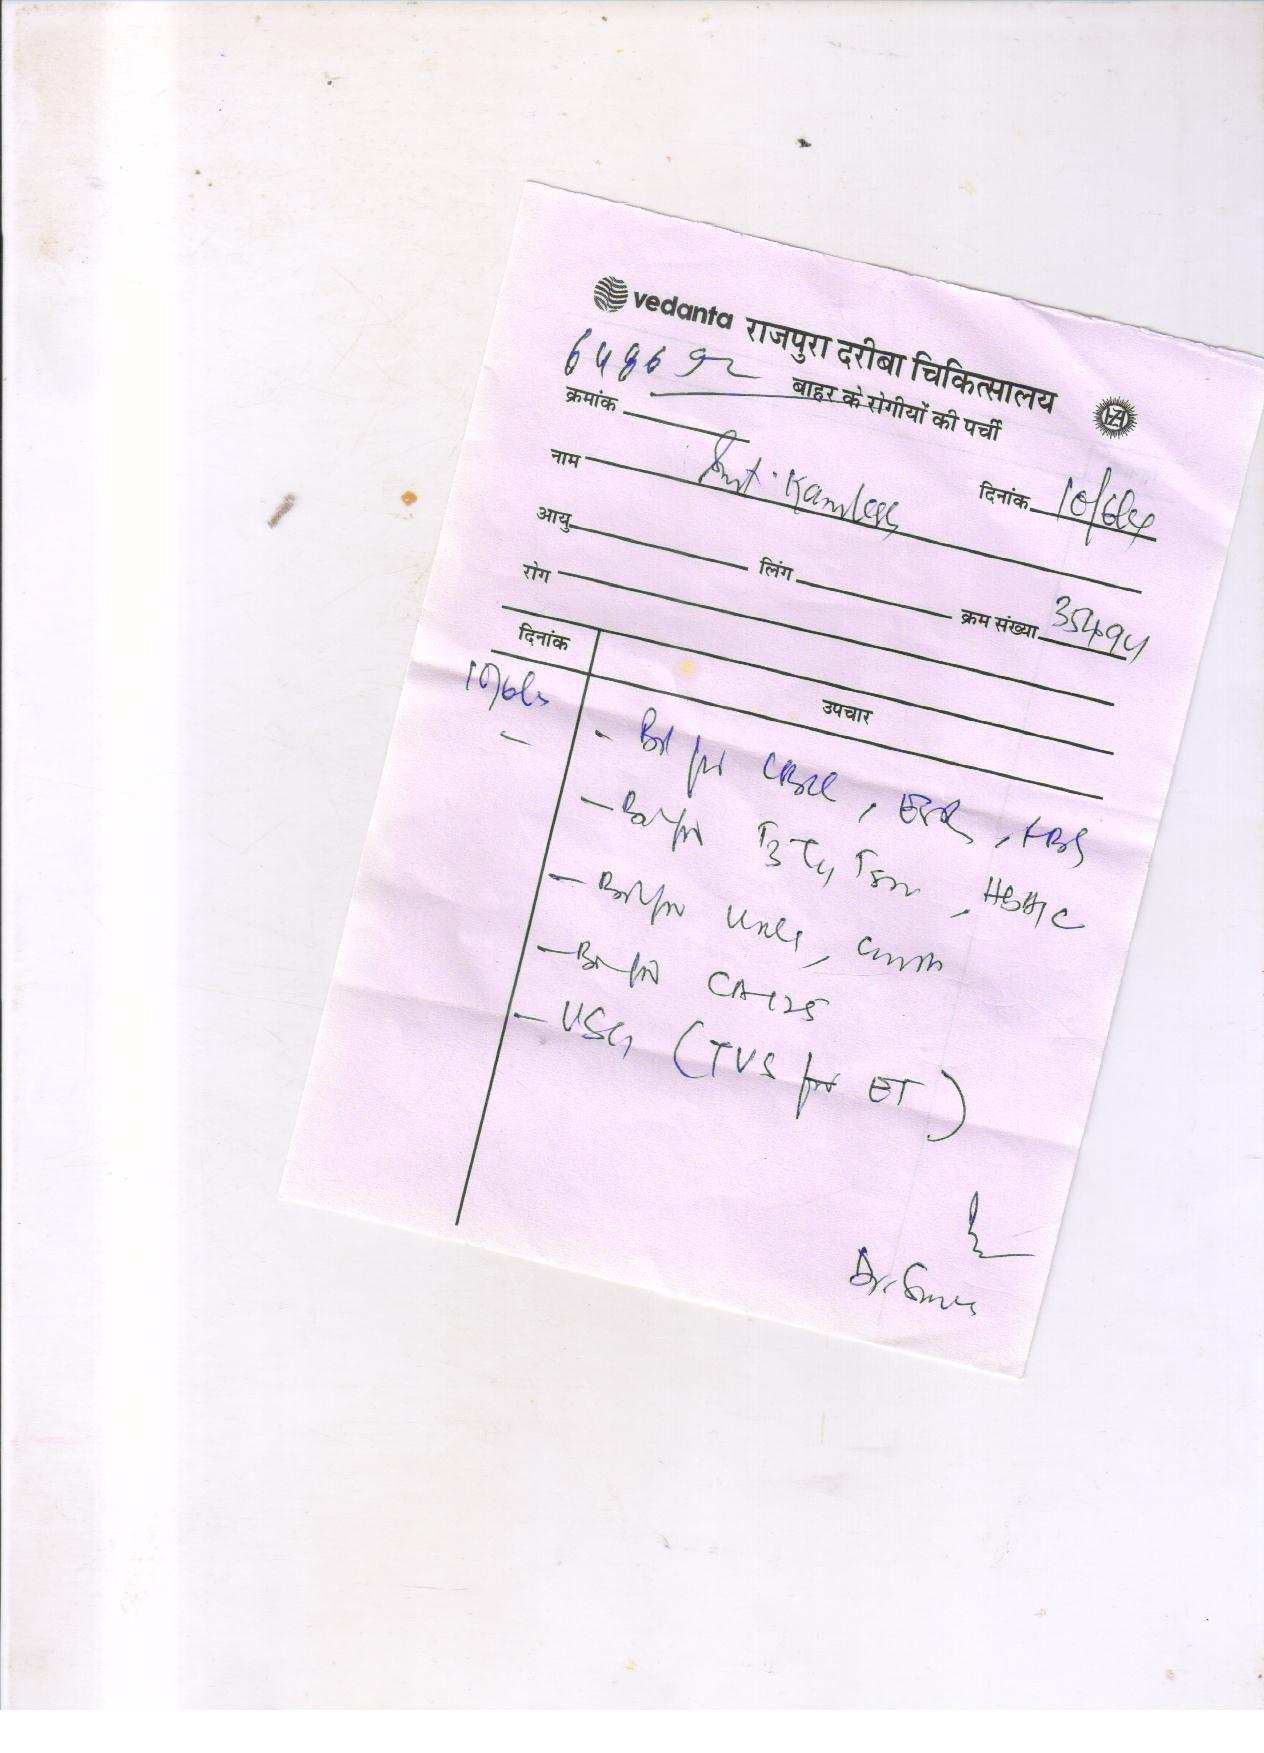 vedanta राजपुरा दरीबा चिकित्सालय
6486
बाहर के रोगीयों की पर्ची
क्रमांक
नाम Smt. Kamlesh दिनांक 10/6/24
आयु लिंग
रोग क्रम संख्या 35494
दिनांक उपचार
- Bl for CBC, ESR, FBS
- Bl for T3 T4 TSH, HbA1C
- Bl for Urea, Creat
- Bl for CA-125
- USG (TVS for ET)
Dr.